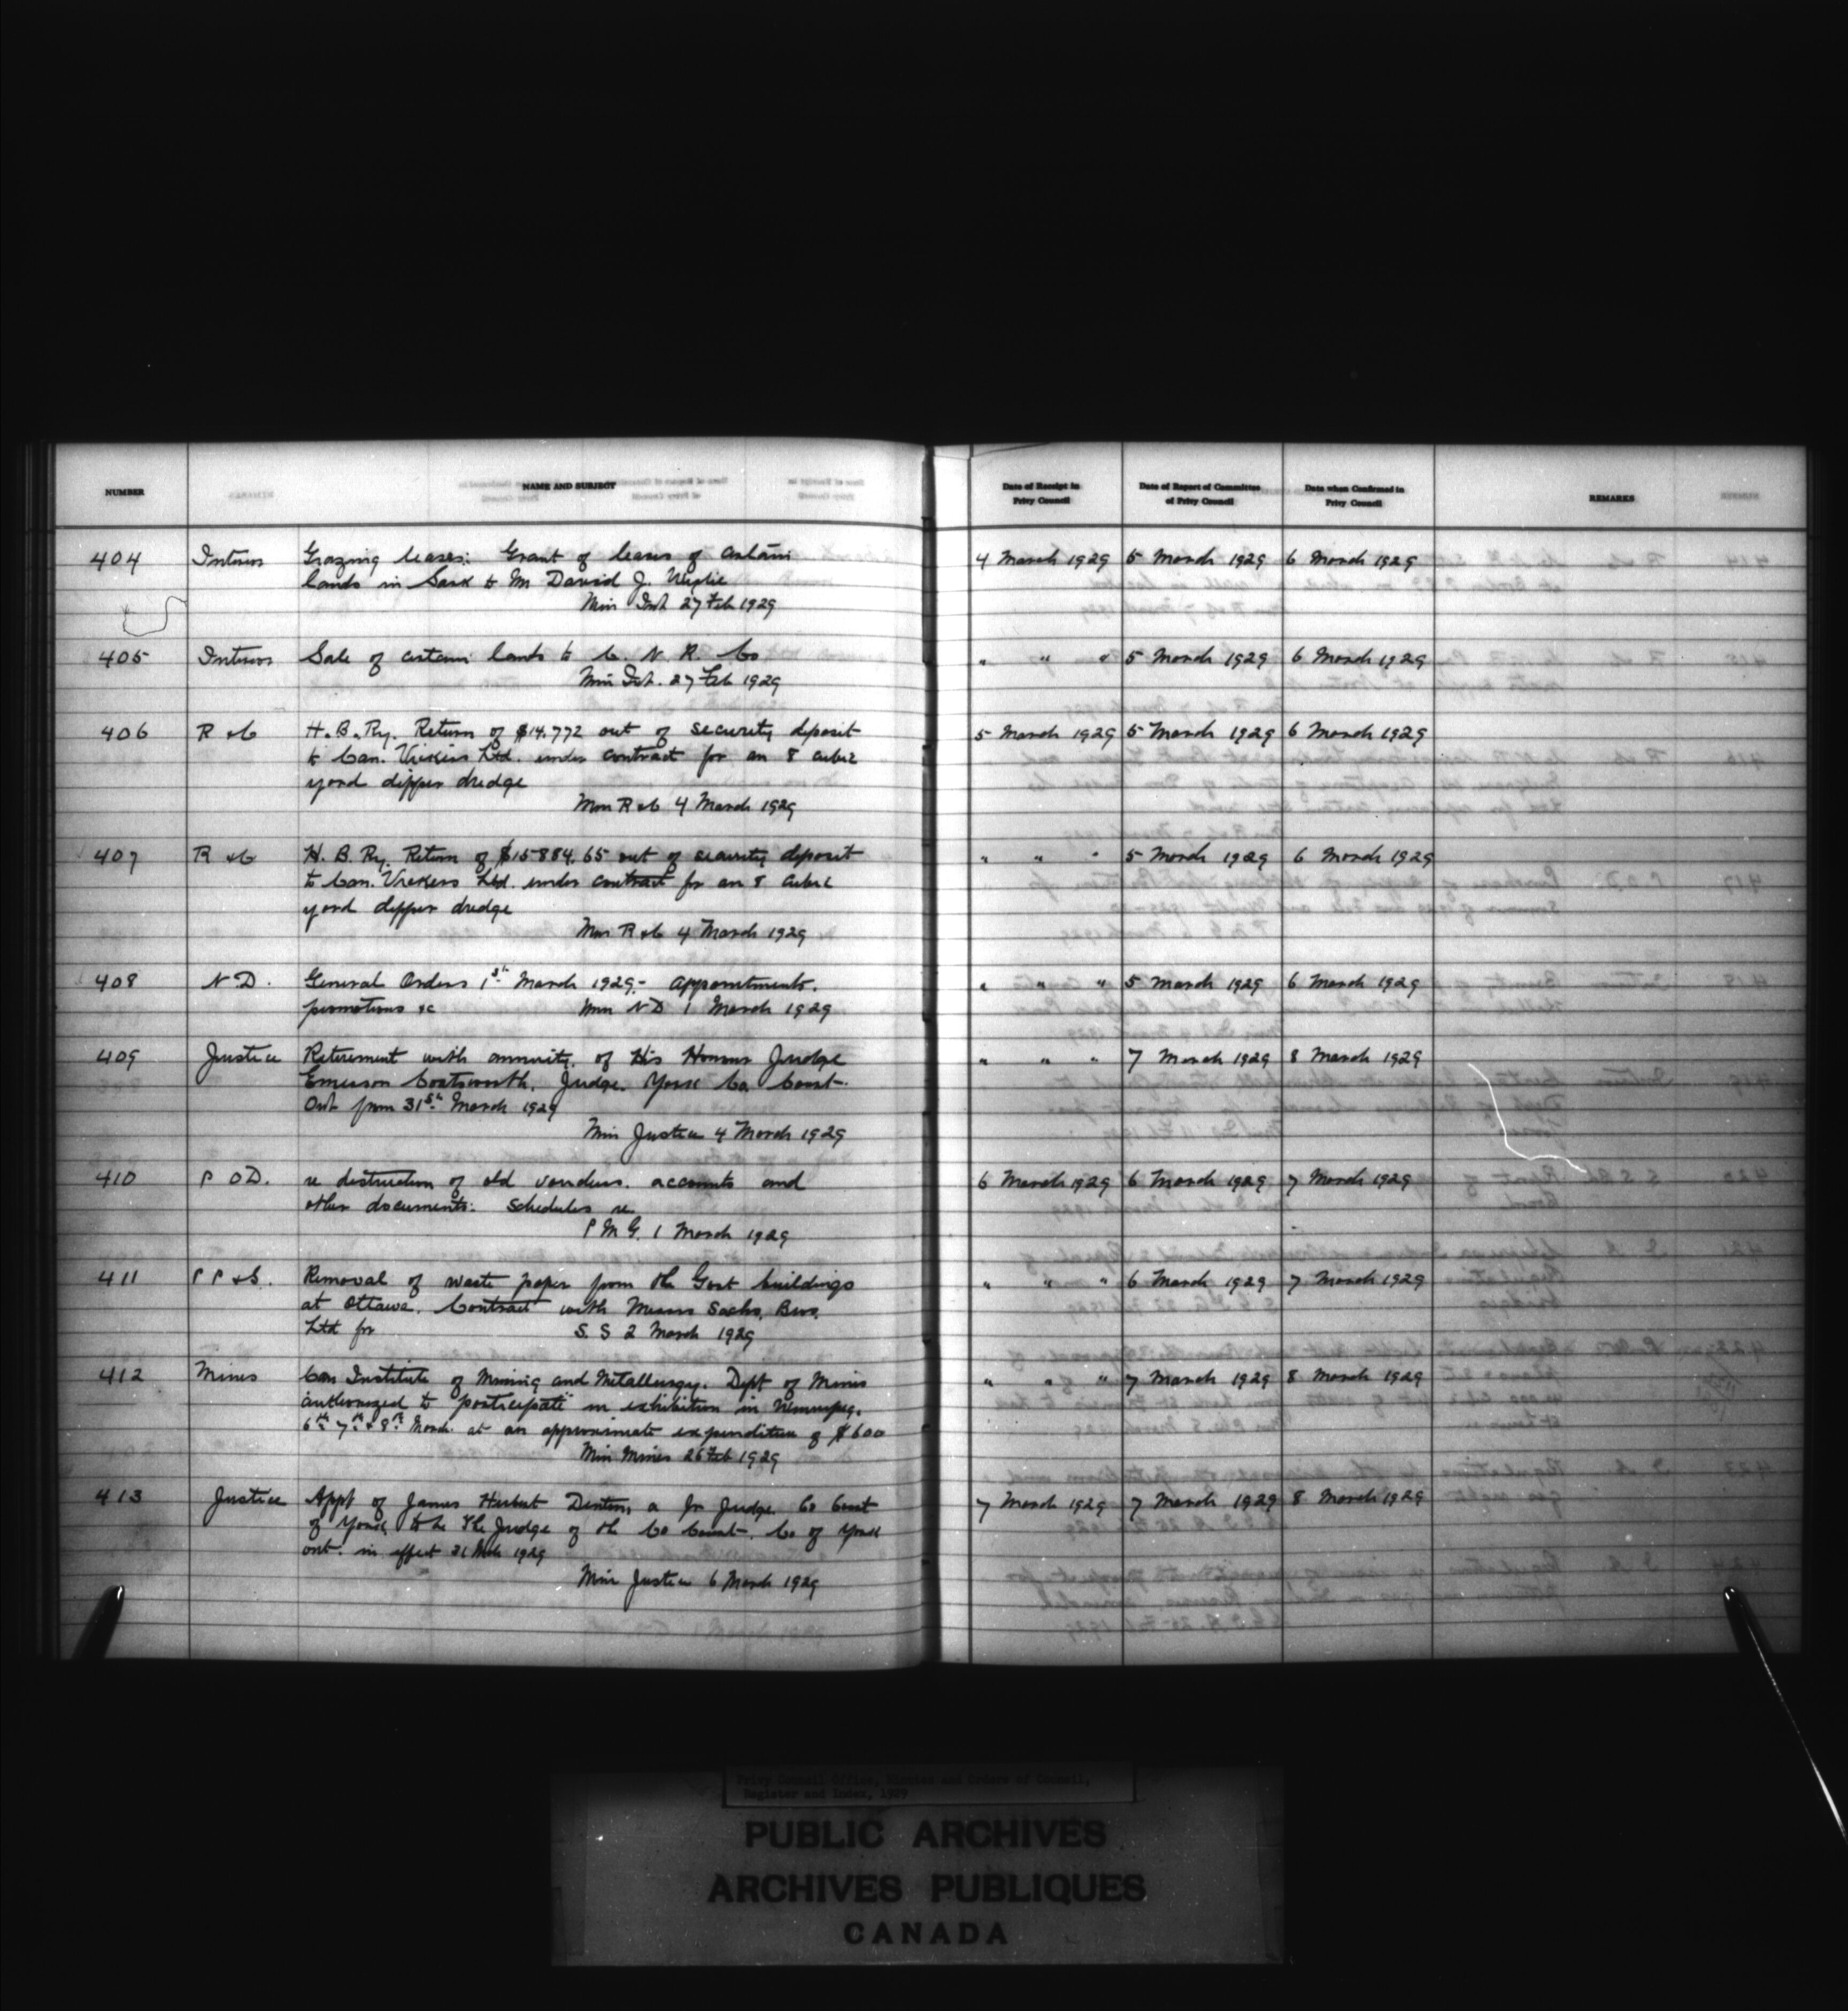 NUMBER NAME AND SUBJECT Date of Receipt in Privy Council Date of Report of Committee of Privy Council Date when Confirmed in Privy Council REMARKS
404 Interior Grazing leases: Grant of leases of certain 4 March 1929 5 March 1929 6 March 1929
lands in Sask to Mr David J. Wylie
Min Int 27 Feb 1929
405 Interior Sale of certain lands to C. N. R. Co " " " 5 March 1929 6 March 1929
Min Int. 27 Feb 1929
406 R & C H. B. Ry. Return of $14.772 out of security deposit 5 March 1929 5 March 1929 6 March 1929
to Can. Vickers Ltd. under contract for an 8 cubic
yard dipper dredge
Min R & C 4 March 1929
407 R & C H. B. Ry. Return of $15884.65 out of security deposit " " " 5 March 1929 6 March 1929
to Can. Vickers Ltd. under contract for an 8 cubic
yard dipper dredge
Min R & C 4 March 1929
408 N. D. General Orders 1st March 1929 - appointments. " " " 5 March 1929 6 March 1929
promotions &c Min N D 1 March 1929
409 Justice Retirement with annuity, of His Honour Judge " " " 7 March 1929 8 March 1929
Emerson Coatsworth, Judge. York Co. Court.
Ont from 31st March 1929
Min Justice 4 March 1929
410 P O D. re destruction of old vouchers. accounts and 6 March 1929 6 March 1929 7 March 1929
other documents: Schedules re
P M G. 1 March 1929
411 P P & S. Removal of waste paper from the Govt buildings " " " 6 March 1929 7 March 1929
at Ottawa. Contract with Messrs Sachs, Bros.
Ltd for S. S 2 March 1929
412 Mines Can Institute of Mining and Metallurgy. Dept of Mines " " " 7 March 1929 8 March 1929
authorized to participate in exhibition in Winnipeg.
6th 7th & 8th March at an approximate expenditure of $600
Min Mines 26 Feb 1929
413 Justice Appt of James Herbert Denton, a Jr Judge. Co Court 7 March 1929 7 March 1929 8 March 1929
of York to be the Judge of the Co Court. Co of York
ont. in effect 31 Mch 1929
Min Justice 6 March 1929
Privy Council Office, Minutes and Orders of Council,
Register and Index, 1929
PUBLIC ARCHIVES
ARCHIVES PUBLIQUES
CANADA